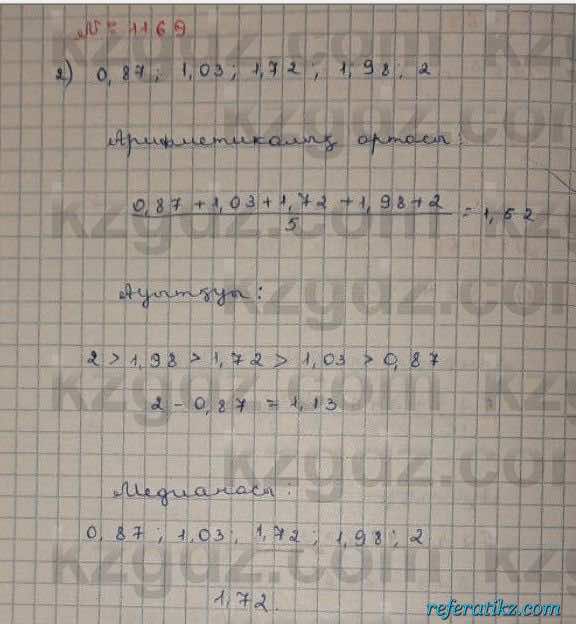 № 1169
2) 0,87; 1,03; 1,72; 1,98; 2
Арифметикалық ортасы:
0,87 + 1,03 + 1,72 + 1,98 + 2
= 1,52
5
Ауытқуы:
2 > 1,98 > 1,72 > 1,03 > 0,87
2 - 0,87 = 1,13
Медианасы:
0,87; 1,03; 1,72; 1,98; 2
1,72.
kzgdz.com
referatikz.com